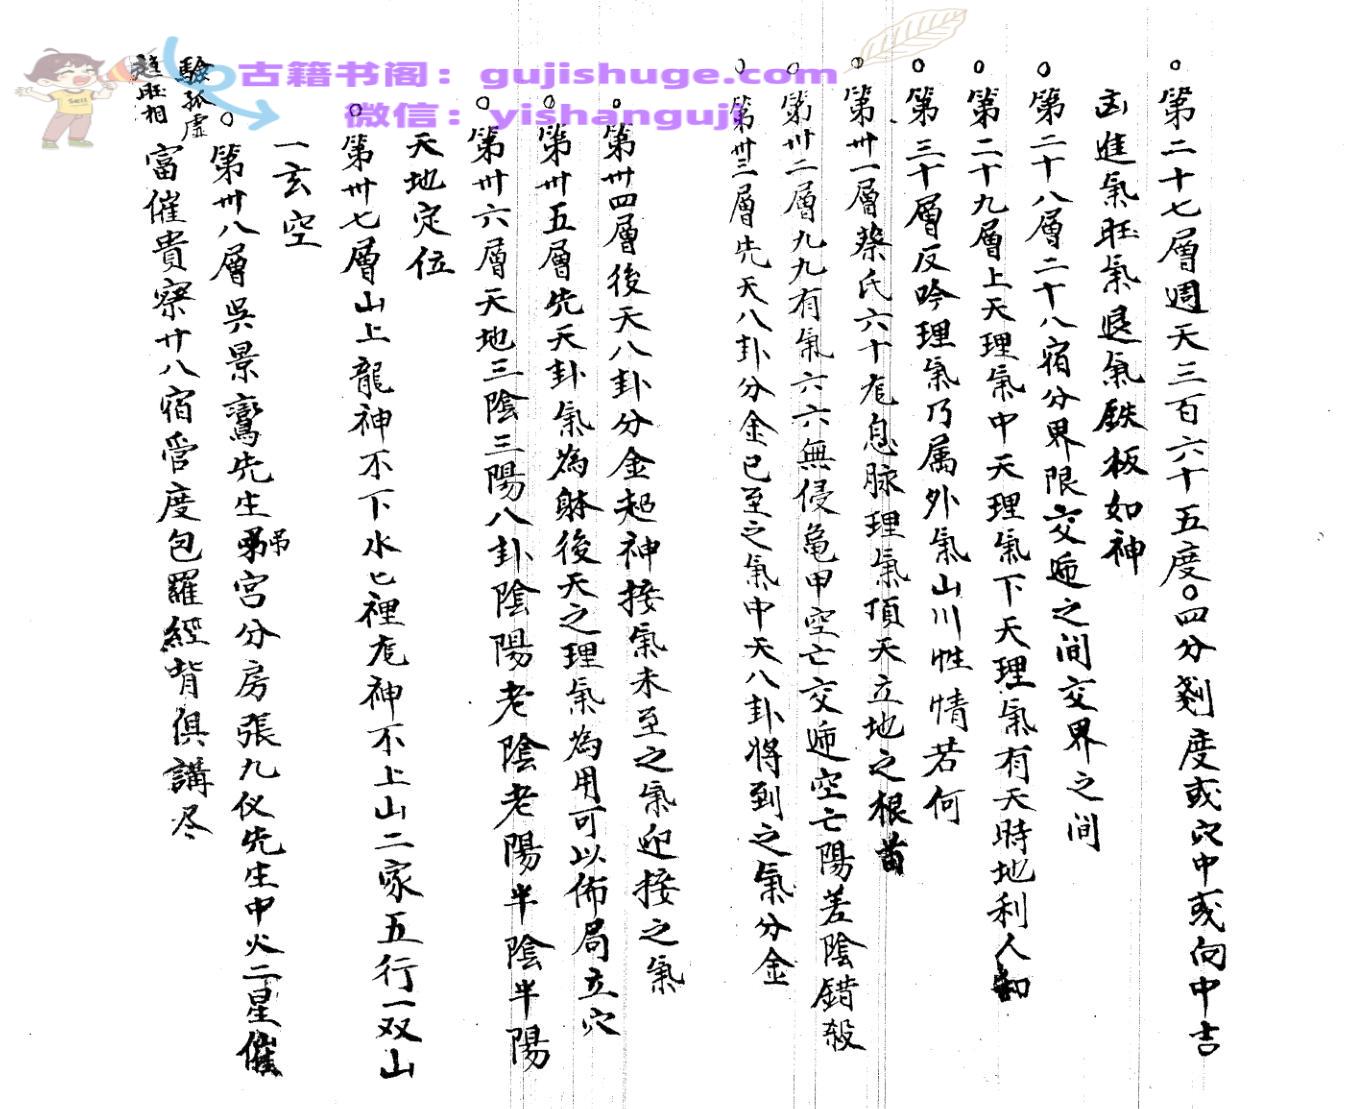 古籍书阁：gujishuge.com
微信：yishanguji
○第二十七層週天三百六十五度○四分剡度或穴中或向中吉
凶進氣旺氣退氣鉄板如神
○第二十八層二十八宿分界限交逓之间交界之间
○第二十九層上天理氣中天理氣下天理氣有天時地利人和
○第三十層反吟理氣乃属外氣山川性情若何
○第卅一層蔡氏六十尨息脉理氣頂天立地之根苗
○第卅二層九九有氣六六無侵亀甲空亡交逓空亡陽差陰錯殺
○第卅三層先天八卦分金已至之氣中天八卦将到之氣分金
○第卅四層後天八卦分金起神接氣未至之氣迎接之氣
○第卅五層先天卦氣為躰後天之理氣為用可以佈局立穴
○第卅六層天地三陰三陽八卦陰陽老陰老陽半陰半陽
天地定位
○第卅七層山上龍神不下水匕裡尨神不上山二家五行一双山
一玄空
○第卅八層吳景鸞先生弔宮分房張九仪先生中火二星催
富催貴察廿八宿管度包羅經背俱講尽
驗孤虛
旺相